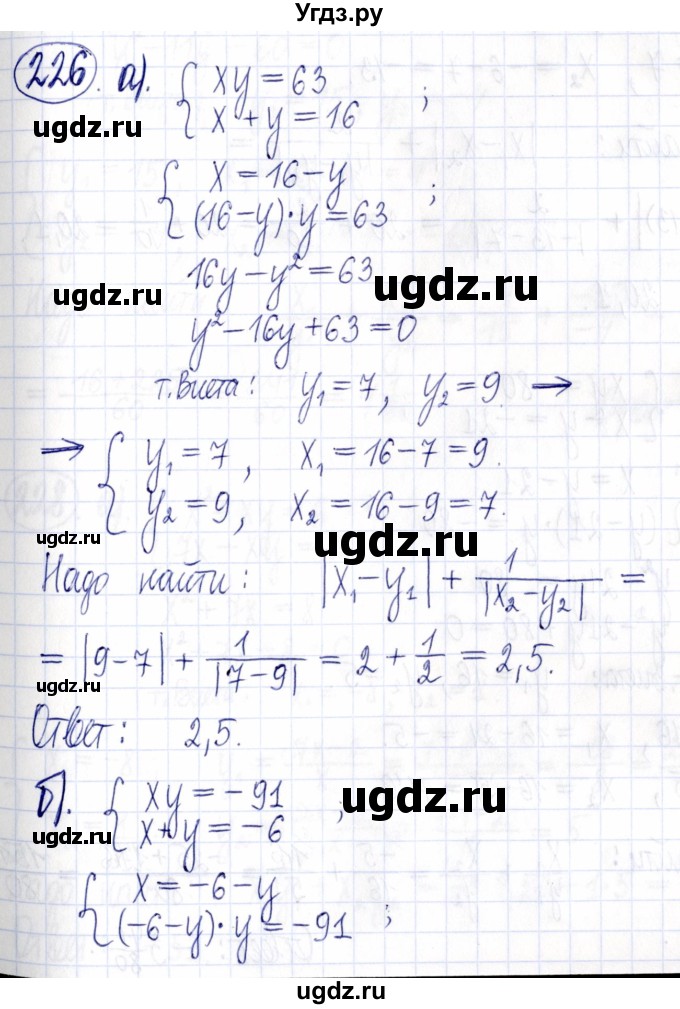 Угдз.ру
226. а). { xy = 63
x + y = 16 ;
ugdz.ru
{ x = 16 − y
(16 − y)·y = 63 ;
16y − y² = 63
ugdz.ru ugdz.ru
y² − 16y + 63 = 0
т. Виета: y₁ = 7, y₂ = 9 →
→ { y₁ = 7, x₁ = 16 − 7 = 9.
y₂ = 9, x₂ = 16 − 9 = 7.
ugdz.ru ugdz.ru
Надо найти: |x₁ − y₁| + 1/|x₂ − y₂| =
= |9 − 7| + 1/|7 − 9| = 2 + 1/2 = 2,5.
ugdz.ru
Ответ: 2,5.
б). { xy = −91
x + y = −6 ;
ugdz.ru ugdz.ru
{ x = −6 − y
(−6 − y)·y = −91 ;
ugdz.ru
ugdz.ru